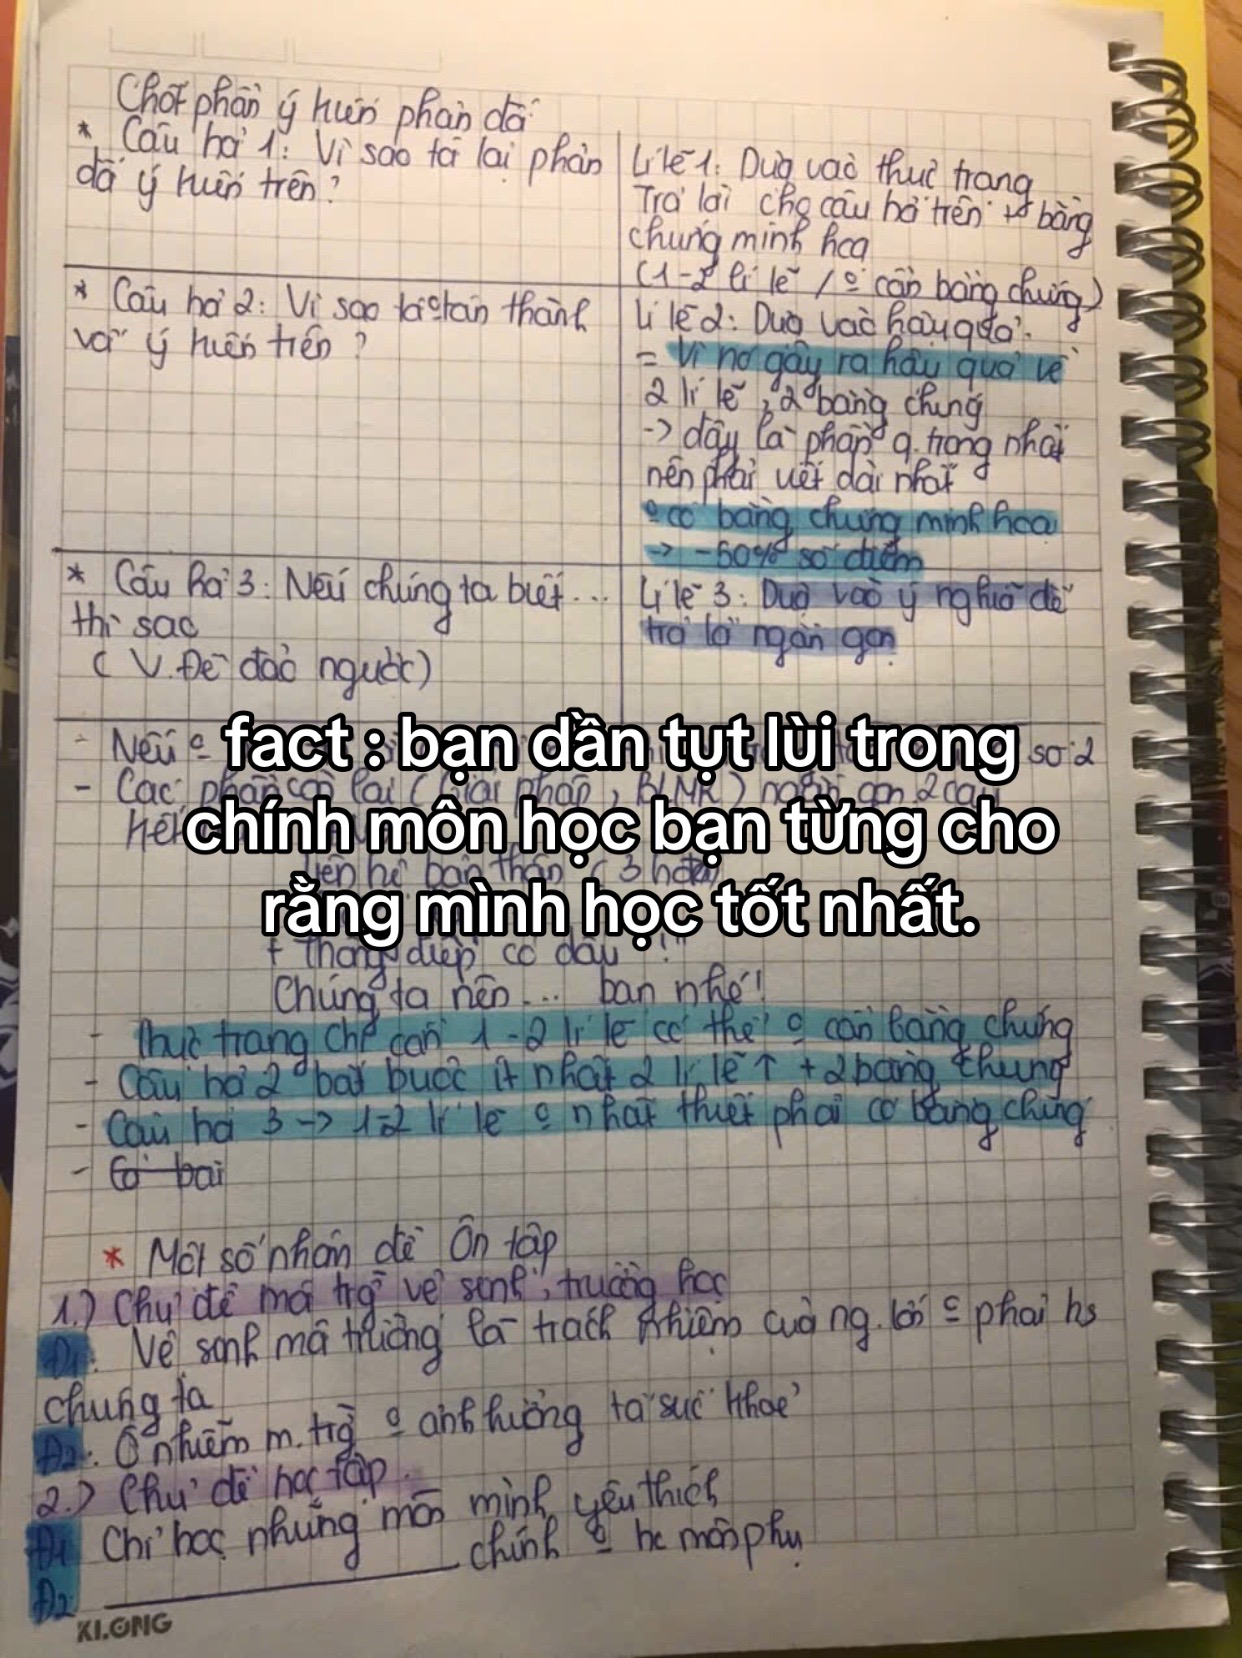 Chốt phần ý kiến phản đối
* Câu hỏi 1: Vì sao tôi lại phản
đối ý kiến trên?
Lí lẽ 1: Dựa vào thực trạng
Trả lời cho câu hỏi trên + bằng
chứng minh họa
(1-2 lí lẽ / º cần bằng chứng)
* Câu hỏi 2: Vì sao tôi º tán thành
với ý kiến trên?
Lí lẽ 2: Dựa vào hậu quả.
= Vì nó gây ra hậu quả về
2 lí lẽ, 2 bằng chứng
-> đây là phần q.trọng nhất
nên phải viết dài nhất
º có bằng chứng minh họa
-> -50% số điểm
* Câu hỏi 3: Nếu chúng ta biết...
thì sao
( V.Đề đảo ngược)
Lí lẽ 3: Dựa vào ý nghĩa để
trả lời ngắn gọn
- Nếu º số 2
fact : bạn dần tụt lùi trong
- Các phần còn lại (Giải pháp, ) ngắn gọn 2 câu
chính môn học bạn từng cho
liên hệ bản thân (3
rằng mình học tốt nhất.
+ Thông điệp có dấu "!"
Chúng ta nên... bạn nhé!
- Thực trạng chỉ cần 1-2 lí lẽ có thể º cần bằng chứng
- Câu hỏi 2 bắt buộc ít nhất 2 lí lẽ ↑ + 2 bằng chứng
- Câu hỏi 3 -> 1-2 lí lẽ º nhất thiết phải có bằng chứng
* Một số nhan đề Ôn tập
1.) Chủ đề môi trg vệ sinh, trường học
Đ1: Vệ sinh môi trường là trách nhiệm của ng.lớn º phải hs
chúng ta
Đ2: Ô nhiễm m.trg º ảnh hưởng tới sức khỏe
2.) Chủ đề học tập.
Đ1 Chỉ học những môn mình yêu thích
Đ2 chính º hc môn phụ
KLONG